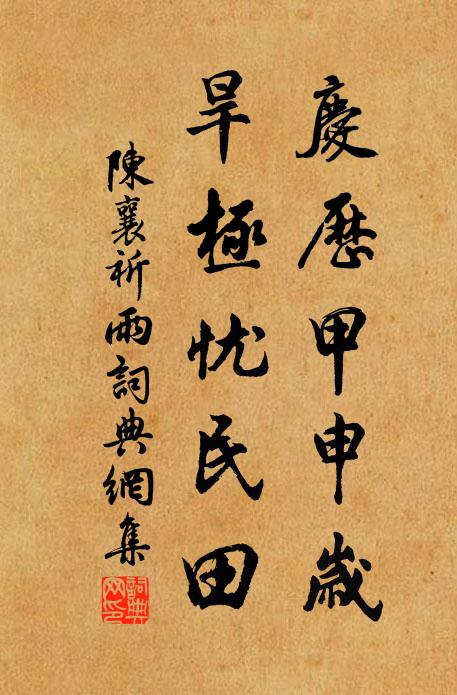 慶歷甲申歲
旱極忧民田
陳襄祈雨詞典網集
詞典網印